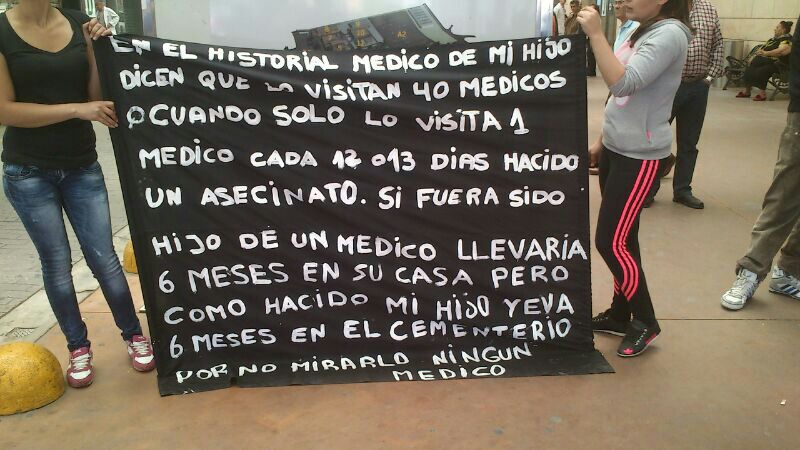 EN EL HISTORIAL MEDICO DE MI HIJO
DICEN QUE LO VISITAN 40 MEDICOS
O CUANDO SOLO LO VISITA 1
MEDICO CADA 12 O 13 DIAS HACIDO
UN ASECINATO. SI FUERA SIDO
HIJO DE UN MEDICO LLEVARIA
6 MESES EN SU CASA PERO
COMO HACIDO MI HIJO YEVA
6 MESES EN EL CEMENTERIO
POR NO MIRARLO NINGUN
MEDICO
A2